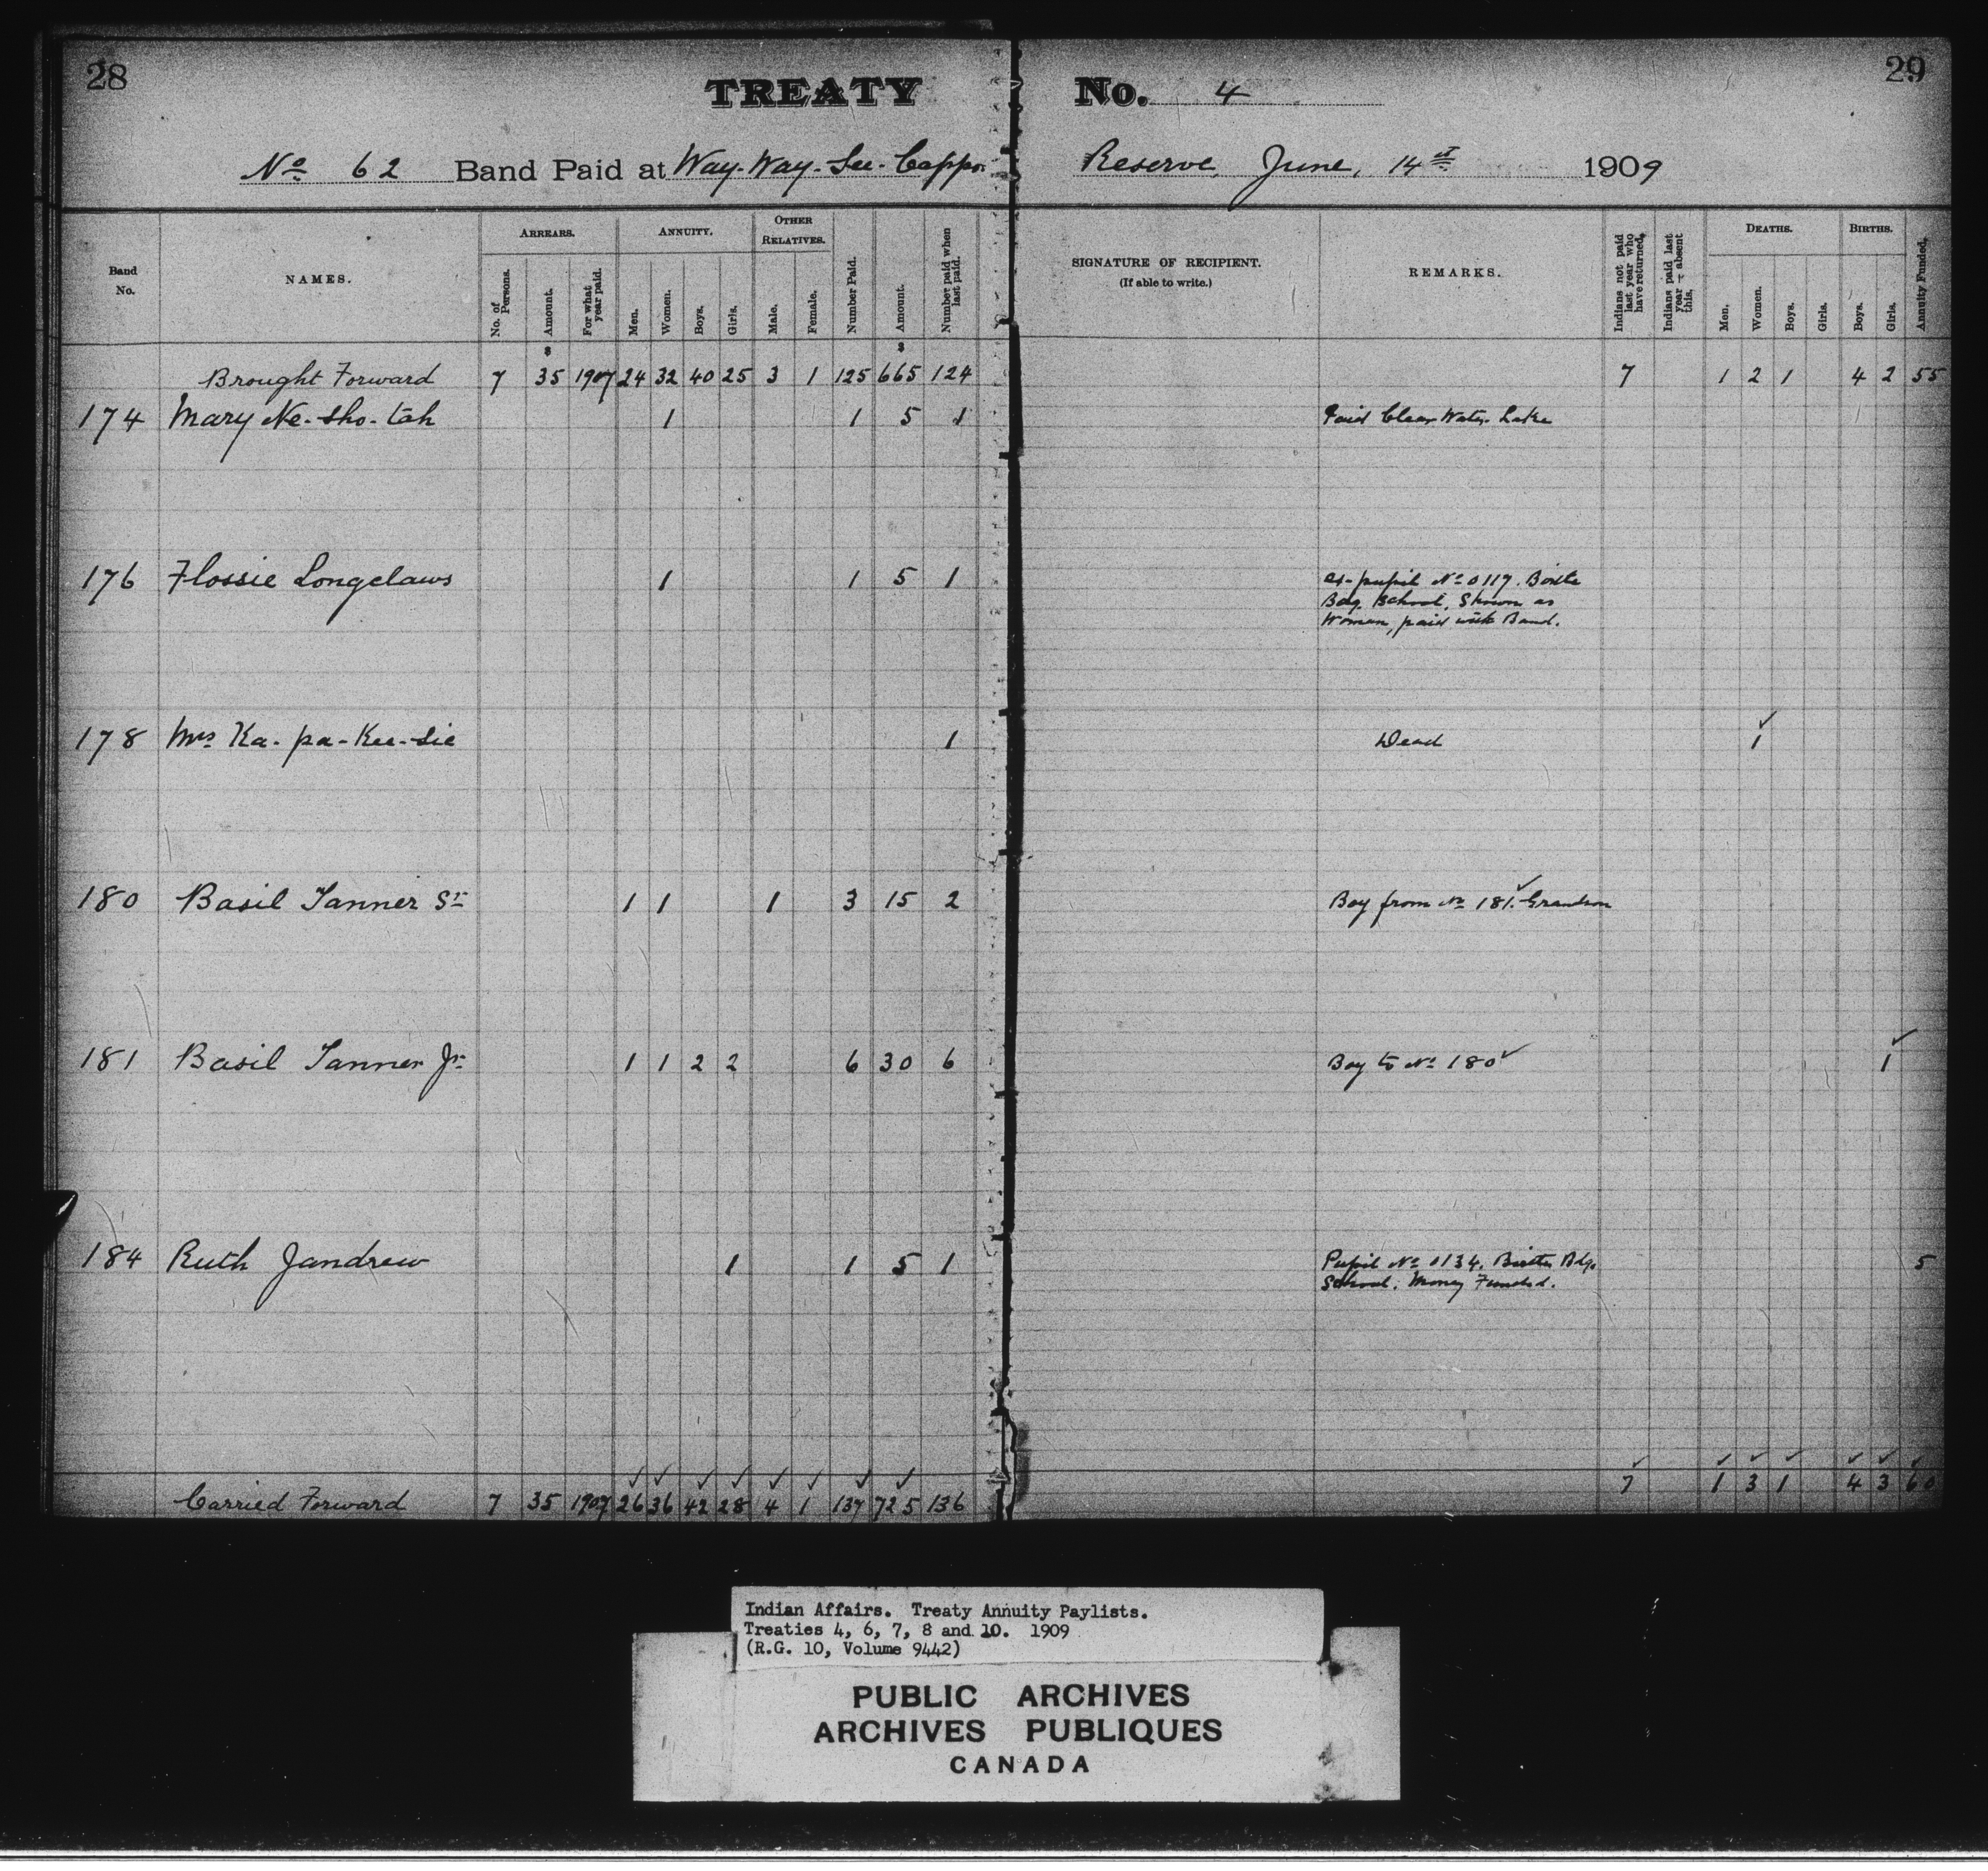 28
TREATY No. 4
29
No 62 Band Paid at Way-Way-See-Cappo Reserve, June, 14th 1909
Band No.
NAMES.
ARREARS.
No. of Persons.
Amount.
For what year paid.
ANNUITY.
Men.
Women.
Boys.
Girls.
OTHER RELATIVES.
Male.
Female.
Number Paid.
Amount.
Number paid when last paid.
SIGNATURE OF RECIPIENT.
(If able to write.)
REMARKS.
Indians not paid last year who have returned.
Indians paid last year — absent this.
DEATHS.
Men.
Women.
Boys.
Girls.
BIRTHS.
Boys.
Girls.
Annuity Funded.
$ $
Brought Forward 7 35 1907 24 32 40 25 3 1 125 665 124 7 1 2 1 4 2 55
174 Mary Ne-sho-tah 1 1 5 1 Paid Clear Water Lake
176 Flossie Longclaws 1 1 5 1 ex-pupil No 0117. Birtle
Bdg. School, Shown as
Woman, paid with Band.
178 Mrs Ka-pa-Kee-sie 1 Dead 1
180 Basil Tanner Sr 1 1 1 3 15 2 Boy from No 181. Grandson
181 Basil Tanner Jr 1 1 2 2 6 30 6 Boy to No 180 1
184 Ruth Jandrew 1 1 5 1 Pupil No 0134. Birtle Bdg. 5
School. Money Funded.
Carried Forward 7 35 1907 26 36 42 28 4 1 137 725 136 7 1 3 1 4 3 60
Indian Affairs. Treaty Annuity Paylists.
Treaties 4, 6, 7, 8 and 10. 1909
(R.G. 10, Volume 9442)
PUBLIC ARCHIVES
ARCHIVES PUBLIQUES
CANADA